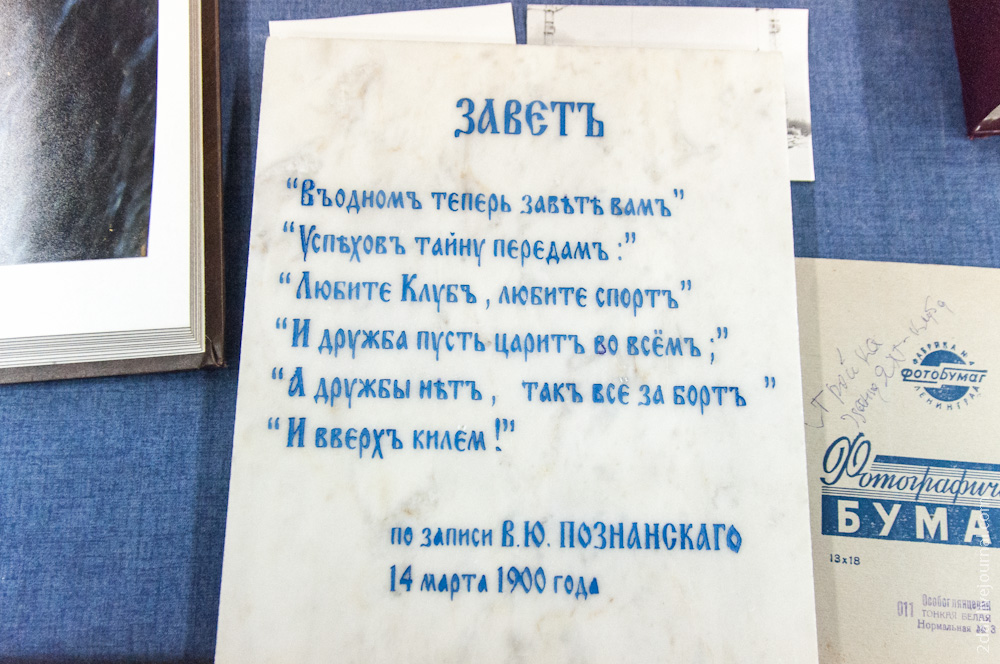 ЗАВЕТЪ
“Въодномъ теперь завѣтѣ вамъ”
“Успѣховъ тайну передамъ :”
“Любите Клубъ , любите спортъ”
“И дружба пусть царитъ во всёмъ ;”
“А дружбы нѣтъ , такъ все за бортъ ”
“И вверхъ килем !”
по записи В.Ю. ПОЗНАНСКАГО
14 марта 1900 года
ФАБРИКА НА
ФОТОБУМАГ
ЛЕНИНГРАД
Фотографич
БУМА
13х18
011 Особоглянцевая
ТОНКАЯ БЕЛАЯ
Нормальная № 3